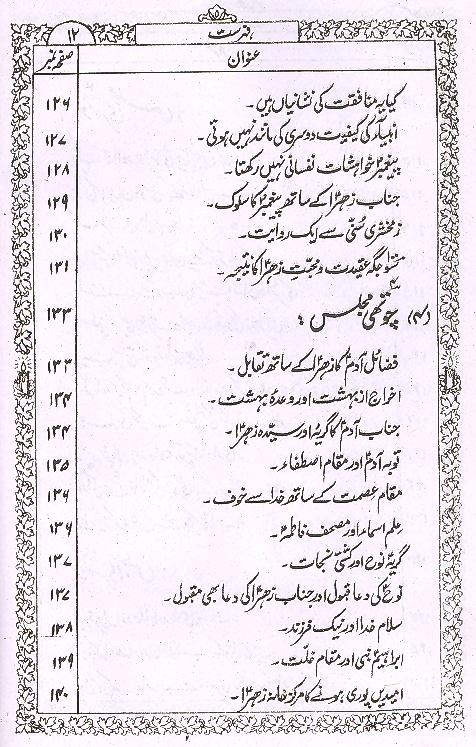 ۱۲ فہرست
صفحہ نمبر عنوان
کیا یہ منافقت کی نشانیاں ہیں۔ ۱۲۶
انبیاءؑ کی کیفیت دوسری کی مانند نہیں ہوتی۔ ۱۲۷
پیغمبرؐ خواہشات نفسانی نہیں رکھتا۔ ۱۲۸
جناب زہراؑ کے ساتھ پیغمبرؐ کا سلوک۔ ۱۲۹
زمخشری سُنّی سے ایک روایت۔ ۱۳۰
سو جگہ عقیدت و محبتِ زہراؑ کا نتیجہ۔ ۱۳۱
(۴) چوتھی مجلس : ۱۳۳
فضائل آدمؑ کا زہراؑ کے ساتھ تقابل۔ ۱۳۳
اخراج از بہشت اور وعدۂ بہشت۔ ۱۳۴
جناب آدمؑ کا گریہ اور سیدہ زہراؑ۔ ۱۳۴
توبہ آدمؑ اور مقام اصطفاء۔ ۱۳۵
مقام عصمت کے ساتھ خدا سے خوف۔ ۱۳۶
علم اسماء اور مصحف فاطمہؑ۔ ۱۳۶
گریۂ نوحؑ اور کشتی نجات۔ ۱۳۷
نوحؑ کی دعا قبول اور جناب زہراؑ کی دعا بھی مقبول۔ ۱۳۷
سلام خدا اور نیک فرزند۔ ۱۳۸
ابراہیمؑ نبی اور مقام خلّت۔ ۱۳۹
امیدیں پوری ہونے کا مرکز خانۂ زہراؑ۔ ۱۴۰